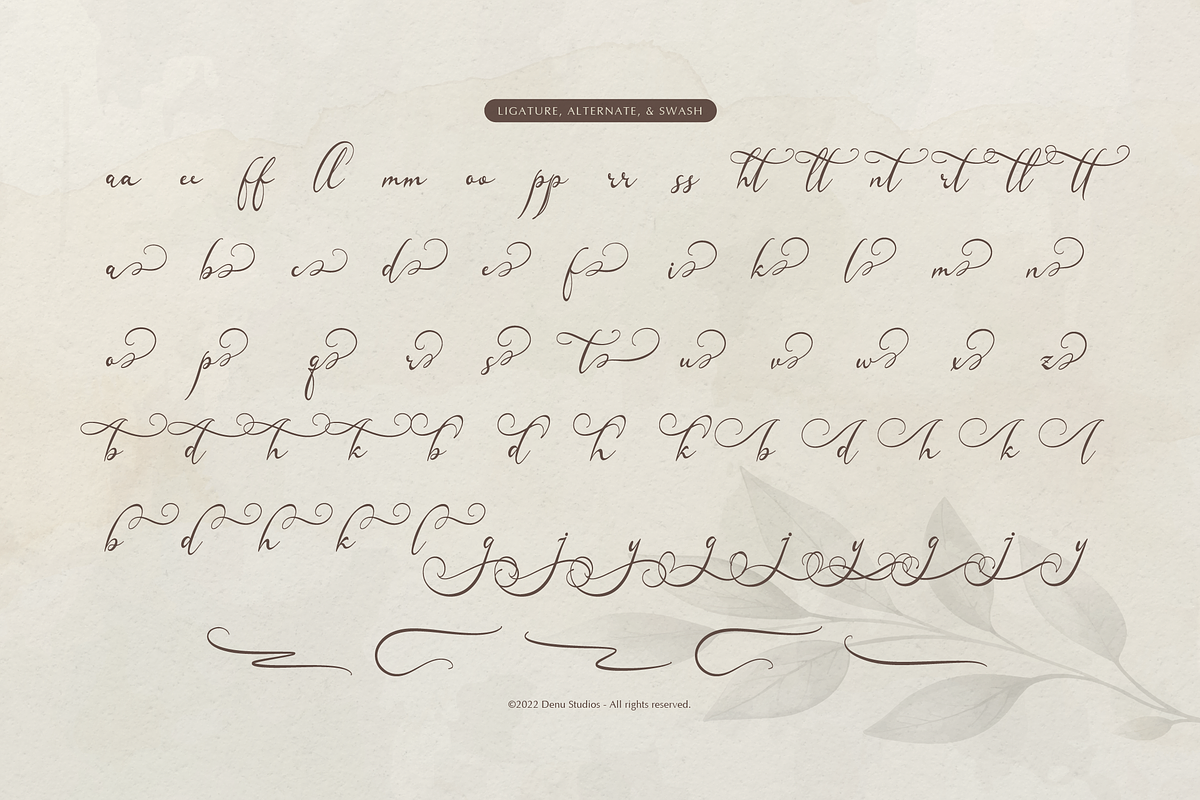 LIGATURE, ALTERNATE, & SWASH
aa ee ff ll mm oo pp rr ss ht lt nt rt tl tt
a b c d e f i k l m n
o p q r s t u v w x z
b d h k b d h k b d h k l
b d h k l g j y g j y g j y
©2022 Denu Studios - All rights reserved.